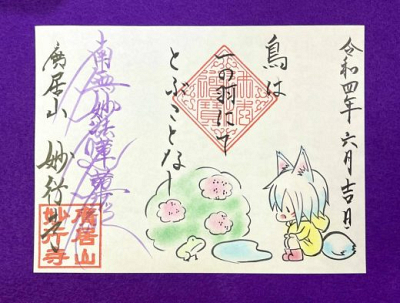 令和四年 六月吉日
鳥は
一の羽にて
とぶことなし
南無妙法蓮華経
廣居山 妙行寺
廣居山
妙行寺